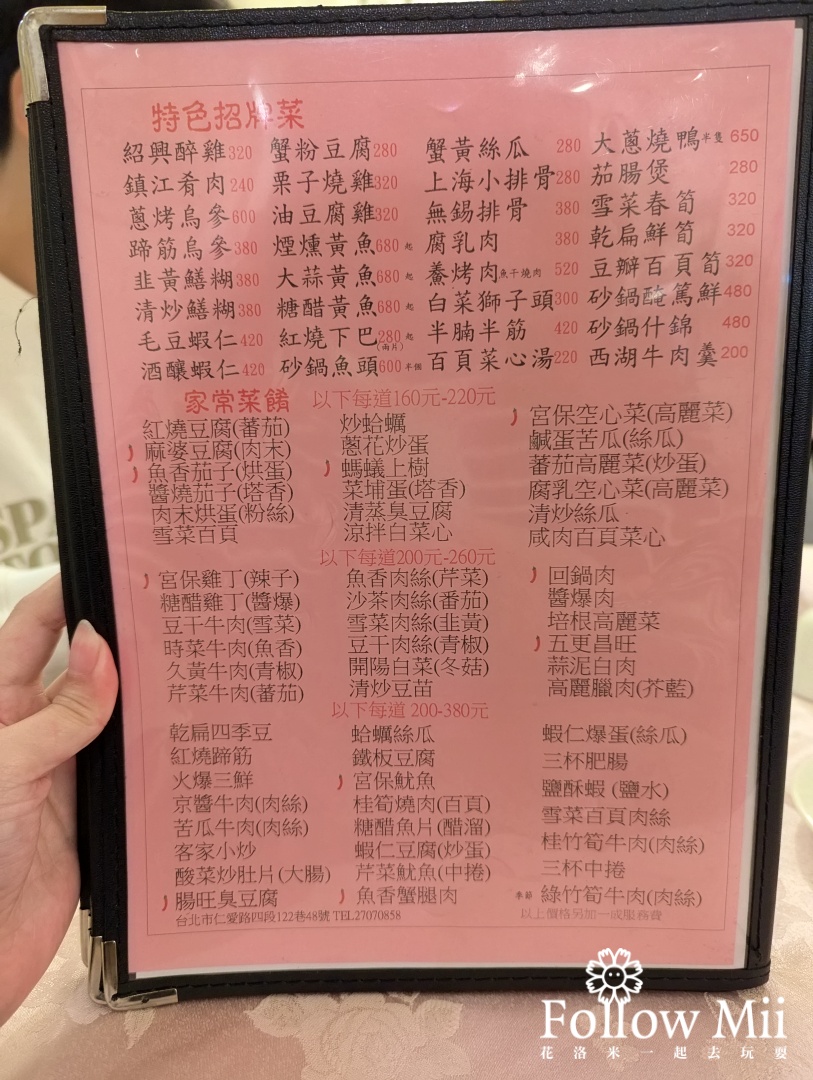 特色招牌菜
紹興醉雞320 蟹粉豆腐280 蟹黃絲瓜 280 大蔥燒鴨半隻 650
鎮江肴肉 240 栗子燒雞320 上海小排骨280 茄腸煲 280
蔥烤烏參600 油豆腐雞320 無錫排骨 380 雪菜春筍 320
蹄筋烏參380 煙燻黃魚680起 腐乳肉 380 乾扁鮮筍 320
韭黃鱔糊380 大蒜黃魚680起 鯗烤肉魚干燒肉 520 豆瓣百頁筍320
清炒鱔糊380 糖醋黃魚680起 白菜獅子頭300 砂鍋醃篤鮮480
毛豆蝦仁420 紅燒下巴280起(兩片) 半腩半筋 420 砂鍋什錦 480
酒釀蝦仁420 砂鍋魚頭600半個 百頁菜心湯220 西湖牛肉羹200
家常菜餚 以下每道160元-220元
紅燒豆腐(蕃茄) 炒蛤蠣 宮保空心菜(高麗菜)
麻婆豆腐(肉末) 蔥花炒蛋 鹹蛋苦瓜(絲瓜)
魚香茄子(烘蛋) 螞蟻上樹 蕃茄高麗菜(炒蛋)
醬燒茄子(塔香) 菜埔蛋(塔香) 腐乳空心菜(高麗菜)
肉末烘蛋(粉絲) 清蒸臭豆腐 清炒絲瓜
雪菜百頁 涼拌白菜心 咸肉百頁菜心
以下每道200元-260元
宮保雞丁(辣子) 魚香肉絲(芹菜) 回鍋肉
糖醋雞丁(醬爆) 沙茶肉絲(番茄) 醬爆肉
豆干牛肉(雪菜) 雪菜肉絲(韭黃) 培根高麗菜
時菜牛肉(魚香) 豆干肉絲(青椒) 五更昌旺
久黃牛肉(青椒) 開陽白菜(冬菇) 蒜泥白肉
芹菜牛肉(蕃茄) 清炒豆苗 高麗臘肉(芥藍)
以下每道 200-380元
乾扁四季豆 蛤蠣絲瓜 蝦仁爆蛋(絲瓜)
紅燒蹄筋 鐵板豆腐 三杯肥腸
火爆三鮮 宮保魷魚 鹽酥蝦 (鹽水)
京醬牛肉(肉絲) 桂筍燒肉(百頁) 雪菜百頁肉絲
苦瓜牛肉(肉絲) 糖醋魚片(醋溜) 桂竹筍牛肉(肉絲)
客家小炒 蝦仁豆腐(炒蛋) 三杯中捲
酸菜炒肚片(大腸) 芹菜魷魚(中捲) 季節 綠竹筍牛肉(肉絲)
腸旺臭豆腐 魚香蟹腿肉
台北市仁愛路四段122巷48號 TEL27070858 以上價格另加一成服務費
Follow Mii
花洛米一起去玩耍